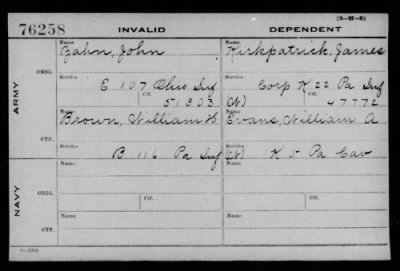 (3-111-5)
76258 INVALID DEPENDENT
Name Name
Gahn, John Kirkpatrick, James
ARMY
ORIG.
Service Service
E 107 Ohio Inf Corp K 22 Pa Inf
Ctf. Ctf.
51303 (W) 47772
Name Name
Brown, William H Evans, William A
CTF.
Service Service
B 116 Pa Inf (W) K 5 Pa Cav
NAVY
Name Name
ORIG.
Service Ctf. Service Ctf.
Name Name
CTF.
Service Service